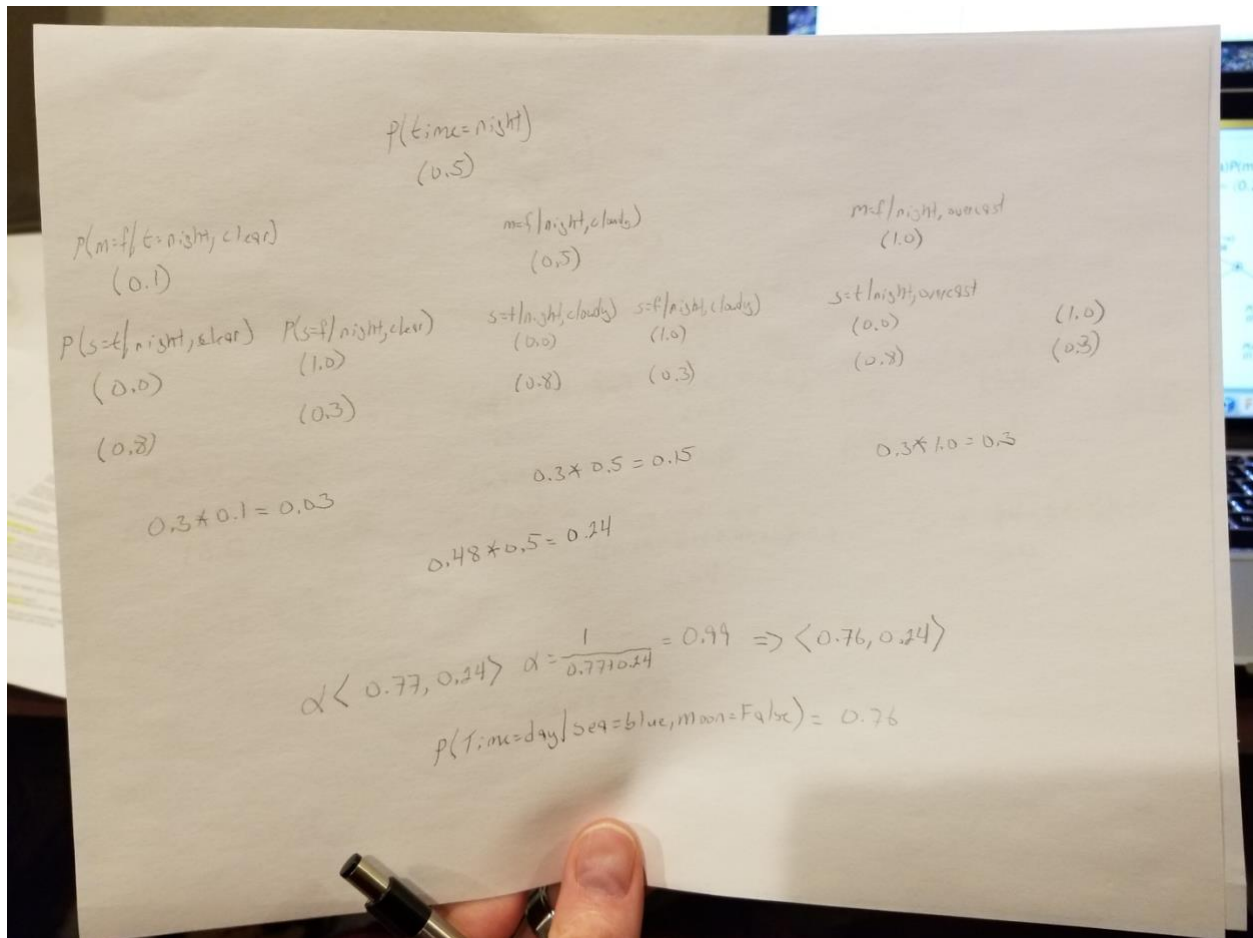 P(time=night)
(0.5)
P(m=f/t=night, clear)
(0.1)
m=f/night, cloudy)
(0.5)
m=f/night, overcast
(1.0)
P(s=t/night, clear)
(0.0)
(0.8)
P(s=f/night, clear)
(1.0)
(0.3)
s=t/night, cloudy)
(0.0)
(0.8)
s=f/night, cloudy)
(1.0)
(0.3)
s=t/night, overcast
(0.0)
(0.8)
(1.0)
(0.3)
0.3*0.1=0.03
0.3*0.5=0.15
0.3*1.0=0.3
0.48*0.5=0.24
α< 0.77, 0.24> α = 1/0.77+0.24 = 0.99 => <0.76, 0.24>
P(Time=day/sea=blue, moon=False) = 0.76